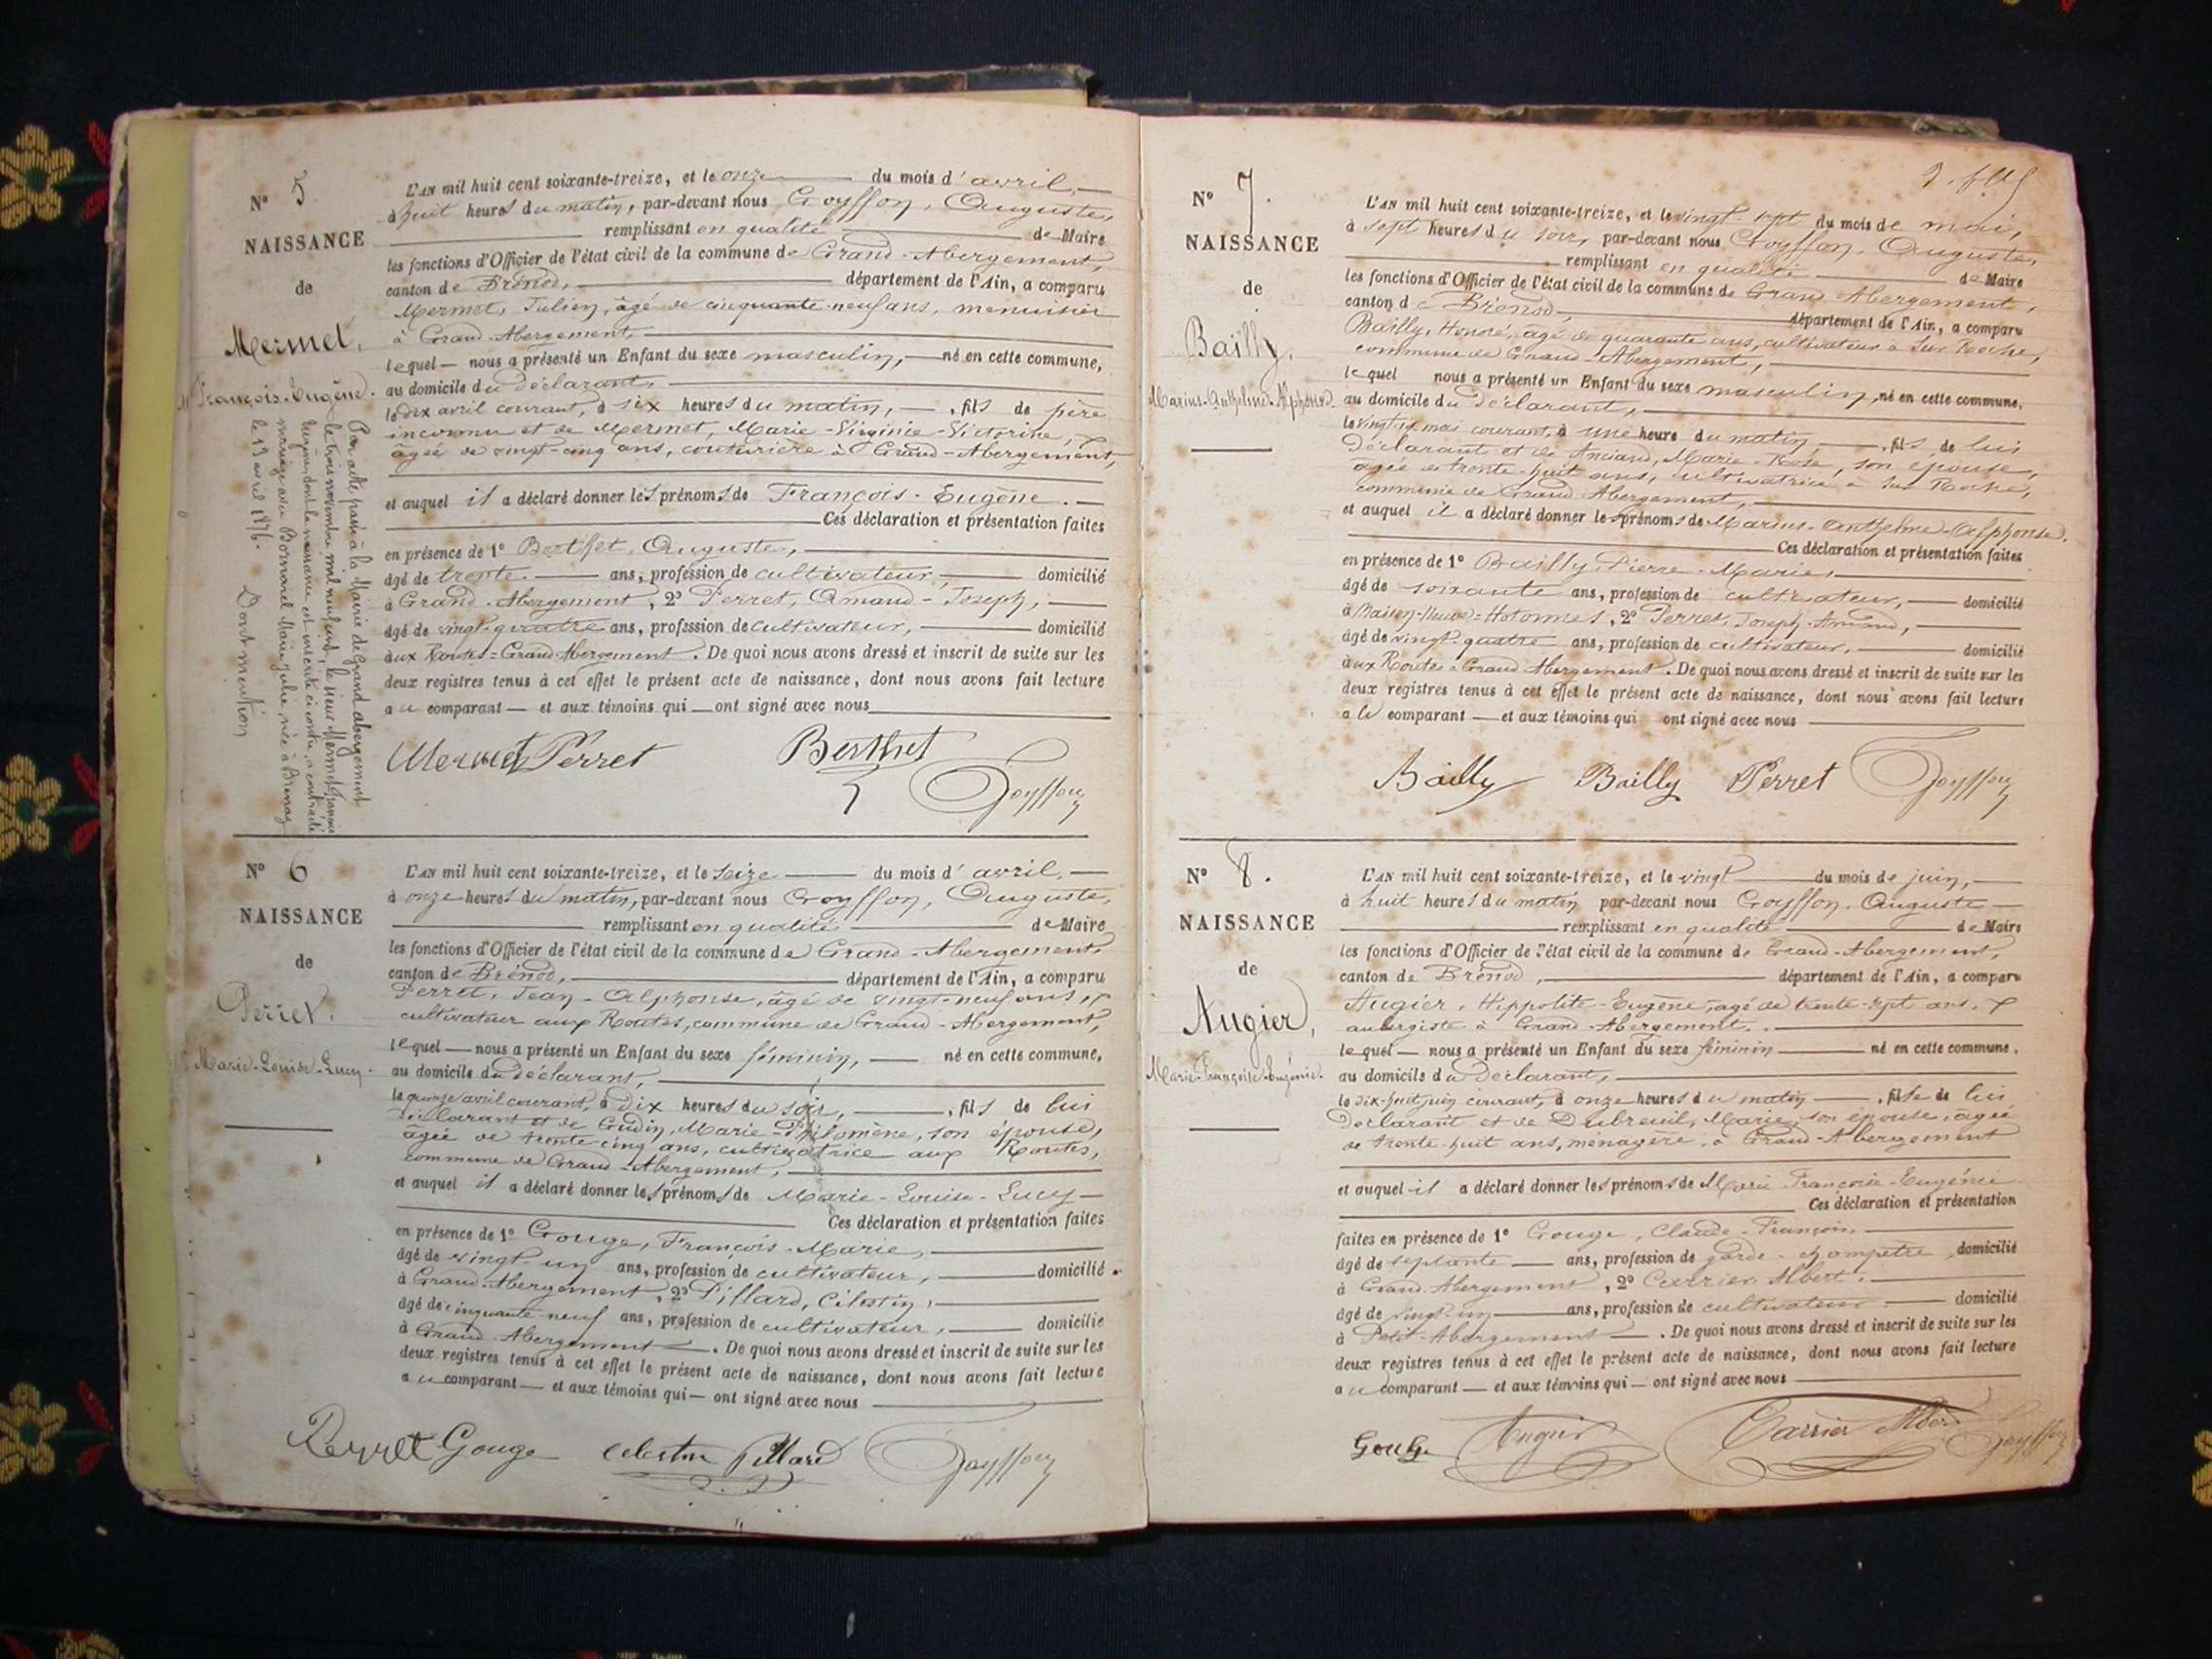 N° 5
NAISSANCE
de
Mermet,
François-Eugène.
Par acte passé à la Mairie de Grand abergement
le trois novembre mil neuf cent, le sieur Mermet François
Eugène, dont la naissance est inscrite ci contre, a contracté
mariage avec Bornarel Marie Julie, née à Brenaz
le 19 avril 1876.
Dont mention
L'AN mil huit cent soixante-treize, et le onze du mois d'avril,
à huit heures du matin, par-devant nous Goyffon, Auguste,
remplissant en qualité de Maire
les fonctions d'Officier de l'état civil de la commune de Grand-Abergement,
canton de Brénod, département de l'Ain, a comparu
Mermet, Julien, âgé de cinquante-neuf ans, menuisier
à Grand-Abergement,
lequel nous a présenté un Enfant du sexe masculin, né en cette commune,
au domicile du déclarant,
le dix avril courant, à six heures du matin, fils de père
inconnu et de Mermet, Marie-Virginie-Victorine,
âgée de vingt-cinq ans, couturière à Grand-Abergement,
et auquel il a déclaré donner les prénoms de François-Eugène.
Ces déclaration et présentation faites
en présence de 1° Berthet, Auguste,
âgé de trente ans, profession de cultivateur, domicilié
à Grand-Abergement, 2° Perret, Amand-Joseph,
âgé de vingt-quatre ans, profession de cultivateur, domicilié
aux Routes-Grand-Abergement. De quoi nous avons dressé et inscrit de suite sur les
deux registres tenus à cet effet le présent acte de naissance, dont nous avons fait lecture
au comparant et aux témoins qui ont signé avec nous
Mermet Perret Berthet Goyffon
N° 6
NAISSANCE
de
Perret.
Marie-Louise-Lucy.
L'AN mil huit cent soixante-treize, et le seize du mois d'avril,
à onze heures du matin, par-devant nous Goyffon, Auguste,
remplissant en qualité de Maire
les fonctions d'Officier de l'état civil de la commune de Grand-Abergement,
canton de Brénod, département de l'Ain, a comparu
Perret, Jean-Alphonse, âgé de vingt-neuf ans,
cultivateur aux Routes, commune de Grand-Abergement,
lequel nous a présenté un Enfant du sexe féminin, né en cette commune,
au domicile du déclarant,
le quinze avril courant, à dix heures du soir, fils de lui
déclarant et de Gudin, Marie-Philomène, son épouse,
âgée de trente-cinq ans, cultivatrice aux Routes,
commune de Grand-Abergement,
et auquel il a déclaré donner les prénoms de Marie-Louise-Lucy
Ces déclaration et présentation faites
en présence de 1° Gouge, François-Marie,
âgé de vingt-un ans, profession de cultivateur, domicilié
à Grand-Abergement, 2° Pillard, Célestin,
âgé de cinquante-neuf ans, profession de cultivateur, domicilié
à Grand-Abergement. De quoi nous avons dressé et inscrit de suite sur les
deux registres tenus à cet effet le présent acte de naissance, dont nous avons fait lecture
au comparant et aux témoins qui ont signé avec nous
Perret Gouge celestin Pillard Goyffon
N° 7.
NAISSANCE
de
Bailly.
Marius-Anthelme-Alphonse.
L'AN mil huit cent soixante-treize, et le vingt-sept du mois de mai,
à sept heures du soir, par-devant nous Goyffon, Auguste,
remplissant en qualité de Maire
les fonctions d'Officier de l'état civil de la commune de Grand-Abergement,
canton de Brénod, département de l'Ain, a comparu
Bailly, Honoré, âgé de quarante ans, cultivateur à Sur Roche,
commune de Grand-Abergement,
lequel nous a présenté un Enfant du sexe masculin, né en cette commune,
au domicile du déclarant,
le vingt-six mai courant, à une heure du matin, fils de lui
déclarant et de Anciand, Marie-Rose, son épouse,
âgée de trente-huit ans, cultivatrice à Sur Roche,
commune de Grand-Abergement,
et auquel il a déclaré donner les prénoms de Marius-Anthelme-Alphonse.
Ces déclaration et présentation faites
en présence de 1° Bailly Pierre-Marie,
âgé de soixante ans, profession de cultivateur, domicilié
à Maison-Neuve-Hotonnes, 2° Perret, Joseph-Amand,
âgé de vingt-quatre ans, profession de cultivateur, domicilié
aux Routes-Grand-Abergement. De quoi nous avons dressé et inscrit de suite sur les
deux registres tenus à cet effet le présent acte de naissance, dont nous avons fait lecture
au comparant et aux témoins qui ont signé avec nous
Bailly Bailly Perret Goyffon
N° 8.
NAISSANCE
de
Augier,
Marie-Françoise-Eugénie.
L'AN mil huit cent soixante-treize, et le vingt du mois de juin,
à huit heures du matin par-devant nous Goyffon, Auguste
remplissant en qualité de Maire
les fonctions d'Officier de l'état civil de la commune de Grand-Abergement,
canton de Brénod, département de l'Ain, a comparu
Augier, Hippolite-Eugène, âgé de trente-sept ans,
aubergiste à Grand-Abergement.
lequel nous a présenté un Enfant du sexe féminin né en cette commune,
au domicile du déclarant,
le dix-huit juin courant, à onze heures du matin, fille de lui
déclarant et de Dubreuil, Marie, son épouse, âgée
de trente-huit ans, ménagère, à Grand-Abergement
et auquel il a déclaré donner les prénoms de Marie Françoise-Eugénie
Ces déclaration et présentation
faites en présence de 1° Gouge, Claude-François,
âgé de septante ans, profession de garde-champetre, domicilié
à Grand-Abergement, 2° Carrier Albert,
âgé de vingt-un ans, profession de cultivateur domicilié
à Petit-Abergement. De quoi nous avons dressé et inscrit de suite sur les
deux registres tenus à cet effet le présent acte de naissance, dont nous avons fait lecture
au comparant et aux témoins qui ont signé avec nous
Gouge Augier Carrier Albert Goyffon